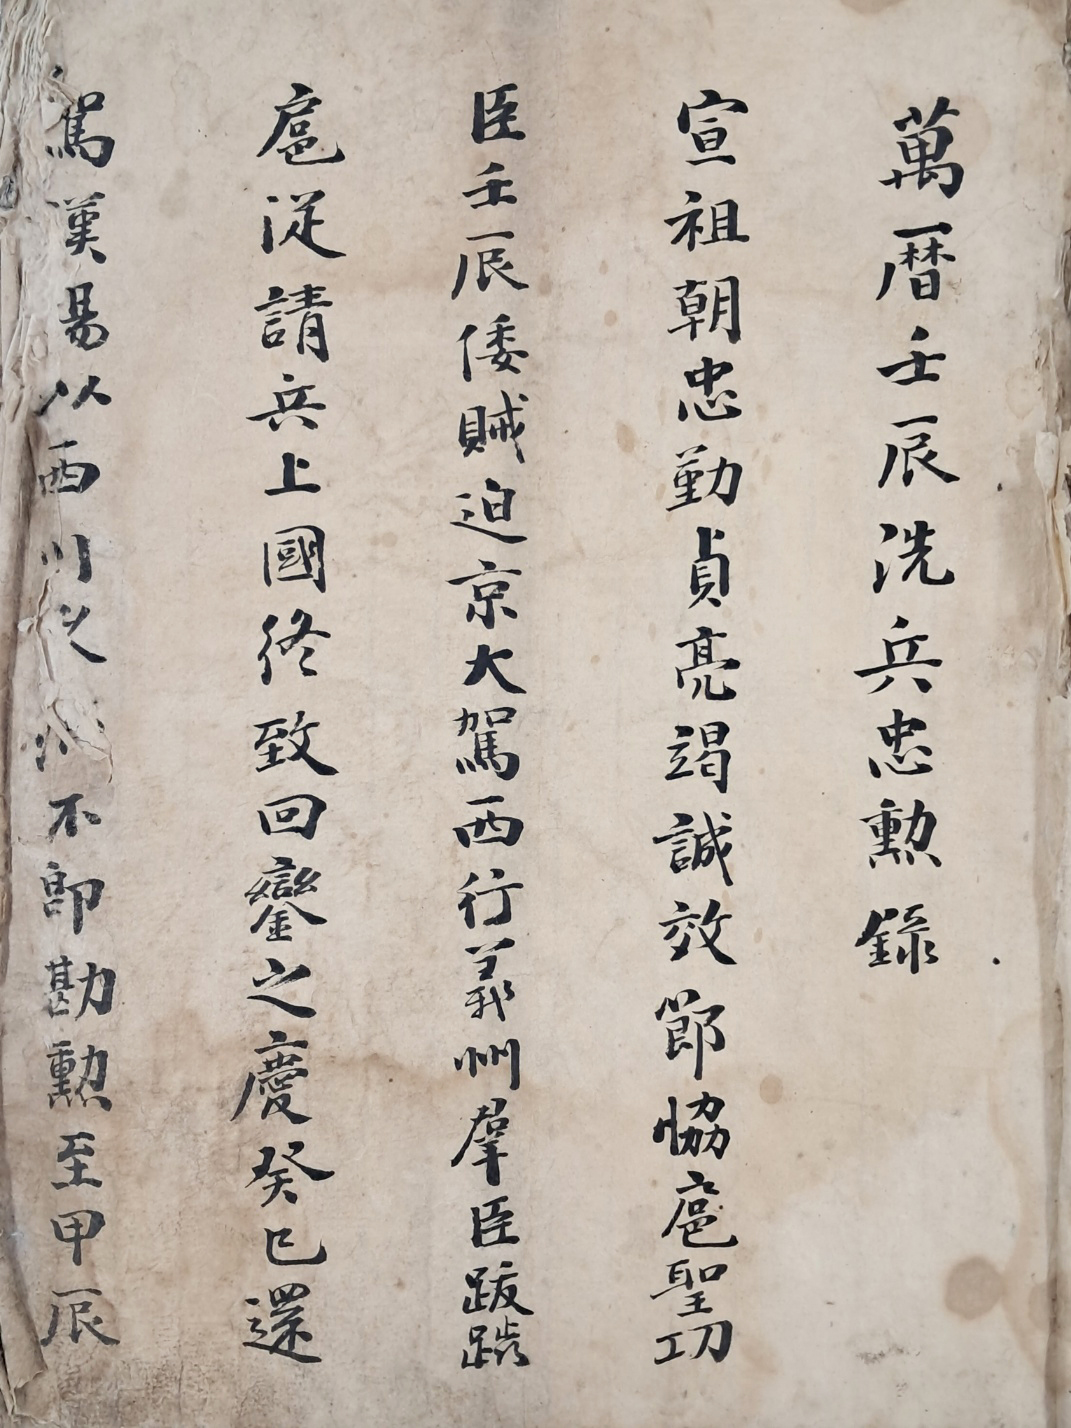 萬曆壬辰洗兵忠勳錄
宣祖朝忠勤貞亮竭誠效節協扈聖功
臣壬辰倭賊迫京大駕西行義州羣臣跋涉
扈從請兵上國終致回鑾之慶癸巳還
駕漢陽以西川之 不即勘勳至甲辰